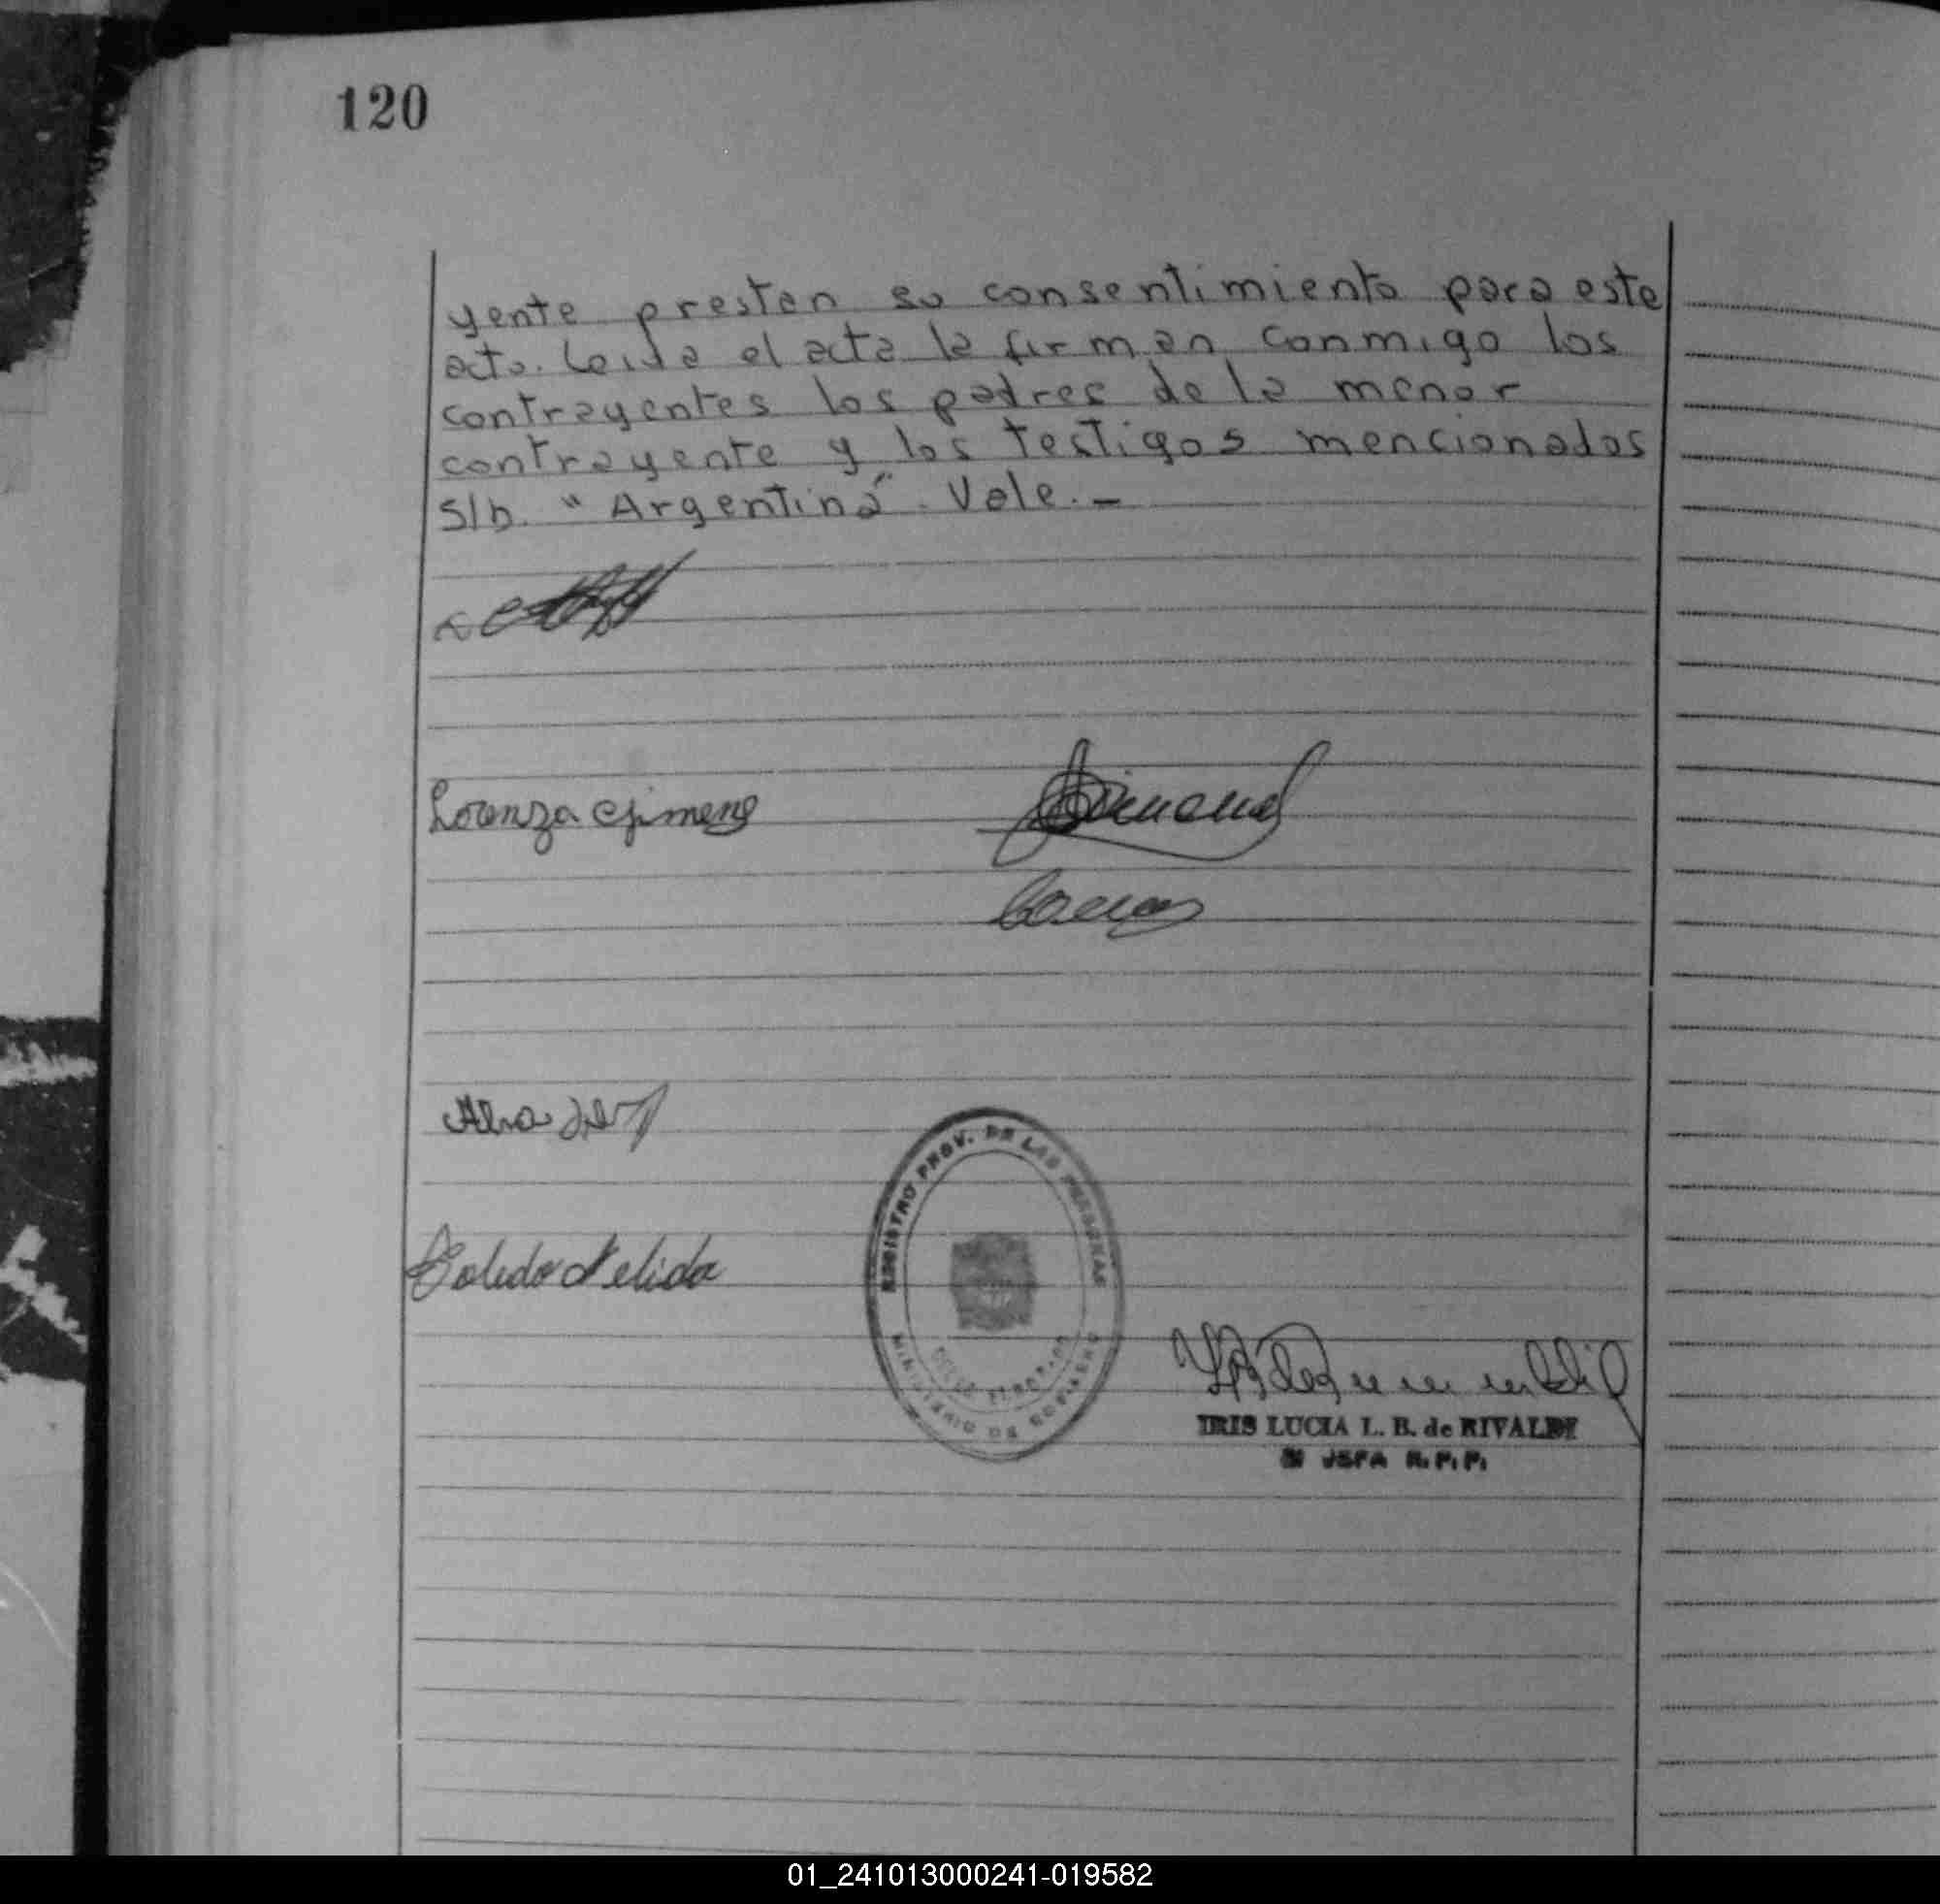 120
yente presten su consentimiento para este
acto. Leida el acta la firman conmigo los
contrayentes los padres de la menor
contrayente y los testigos mencionados
S/b. "Argentina". Vale.-
Lorenza Gimenz
Toledo Nelida
REGISTRO PROV. DE LAS PERSONAS
MINISTERIO DE GOBIERNO
IRIS LUCIA L. B. de RIVALDI
JEFA R. P. P.
01_241013000241-019582